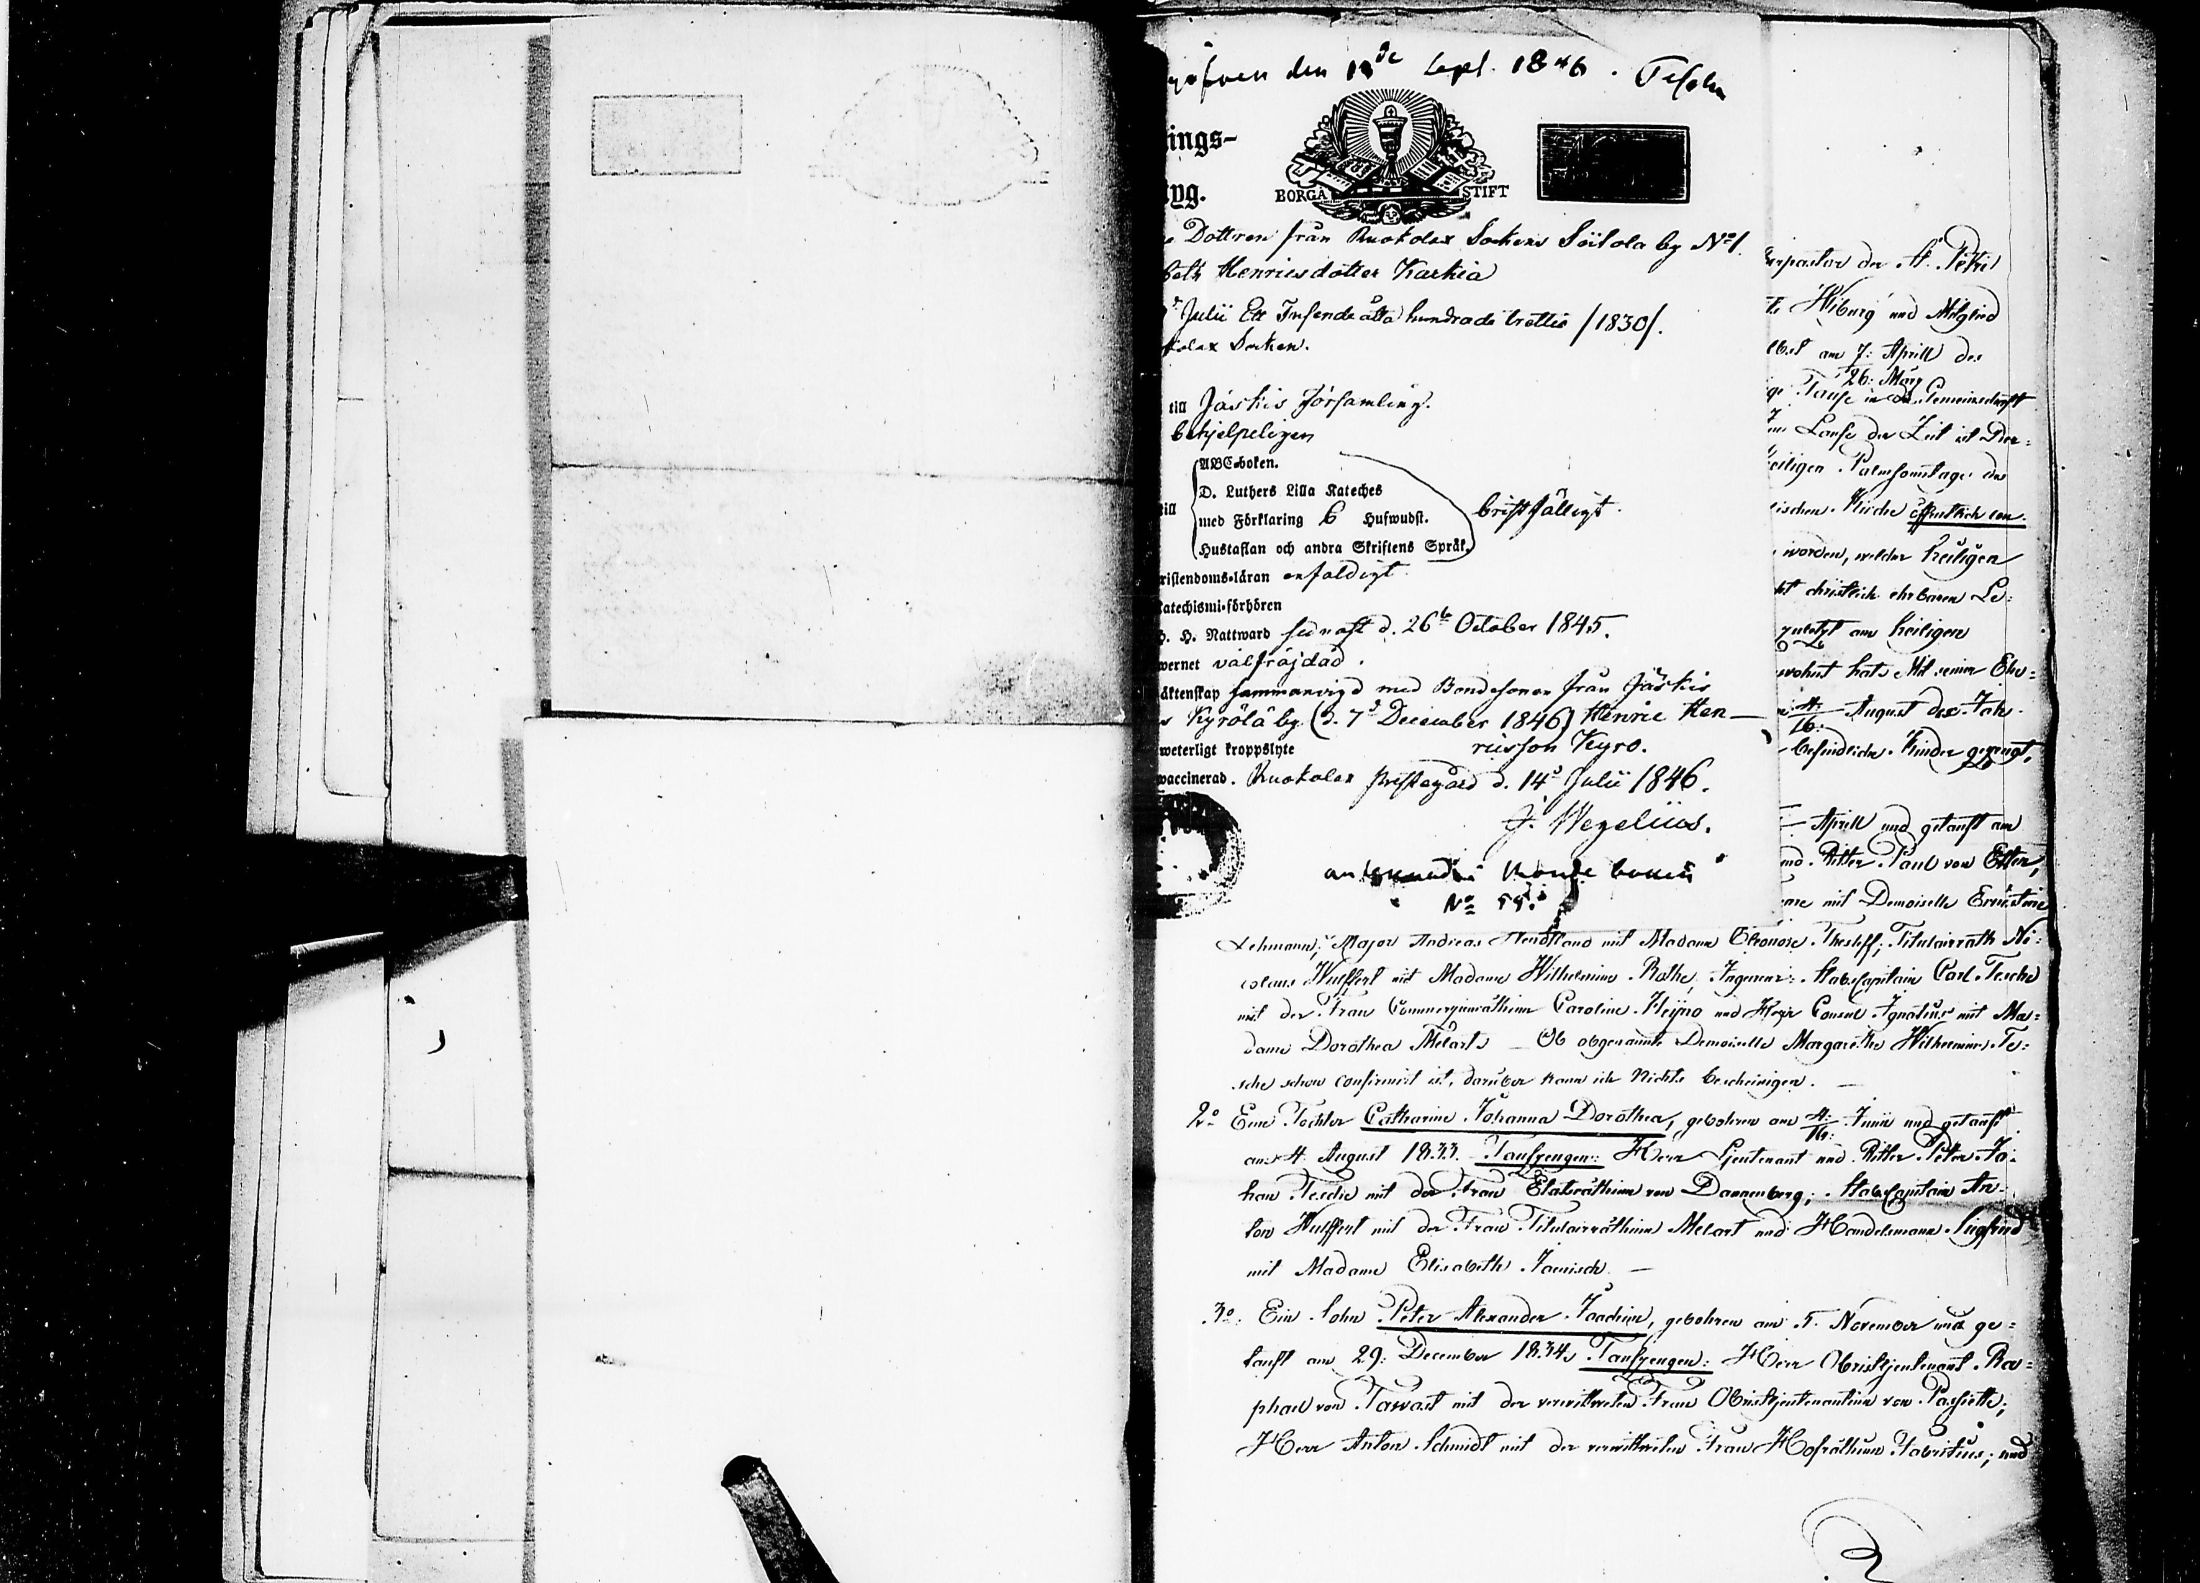 den Sept. 1846.
ings-
tyg.
BORGÅ STIFT
Dottren från Ruokolax Sockens Siitola by No 1.
beth Henricsdotter Karkia
Julii Ett Tusende åtta hundrade trettio /1830/.
kolax Socken.
till Jäskis Församling.
behjelpeligen
ABC-boken.
D. Luthers Lilla Kateches
med Förklaring 6 Hufwudst.
Hustaflan och andra Skriftens Språk.
till
bristfälligt.
ristendoms-läran enfaldigt.
atechismi-förhören
H. Nattward sednast d. 26te October 1845.
wernet välfräjdad.
äktenskap sammanvigd med Bondesonen från Jäskis
s Kyrölä by (d. 7d December 1846) Henric Hen-
ricsson Kyrö.
weterligt kroppslyte
vaccinerad. Ruokolax prestegård d. 14d Julii 1846.
J. Wegelius.
No 55.
erpastor der St. Petri
Wiburg und Mitglied
lbst am 7: Aprill des
26: März
ge Taufe in die Gemeinschaft
Laufe der Zeit ist Der-
eiligen Palmsonntage des
ischen Kirche öffentlich con-
worden, welcher heiligen
christlich ehrbaren Le-
zuletzt am heiligen
wohnt hat. Mit seiner Ehe-
4/16: August des Jah-
befindliche Kinder gezeugt,
Aprill und getauft am
nd Ritter Paul von Etter,
mit Demoiselle Ernestine
Lehmann; Major Andreas Wendtland mit Madame Eleonore Thesleff; Titulairrath Ni-
colaus Wulffert mit Madame Wilhelmine Rothe; Ingenieur-Stabscapitain Carl Tesche
mit der Frau Commerzienräthinn Caroline und Herr Consul Ignatius mit Ma-
dame Dorothea Melart. — Ob obgenannte Demoiselle Margarethe Wilhelmine Te-
sche schon confirmirt ist, darüber kann ich Nichts bescheinigen. —
2o Eine Tochter Catharine Johanna Dorothea, gebohren am 4/16: Junii und getauft
am 4. August 1833. Taufzeugen: Herr Lieutenant und Ritter Peter Jo-
han Tesche mit der Frau Etatsräthinn von Dannenberg; Stabscapitain An-
ton Wulffert mit der Frau Titulairräthinn Melart und Handelsmann Siegfried
mit Madame Elisabeth Jaenisch. —
3o. Ein Sohn Peter Alexander Joachim, gebohren am 5. November und ge-
tauft am 29: December 1834. Taufzeugen: Herr Obristlieutenant Ra-
phael von Tawast mit der verwittweten Frau Obristlieutenantinn von
Herr Anton Schmidt mit der verwittweten Frau Hofräthinn Fabritius; und